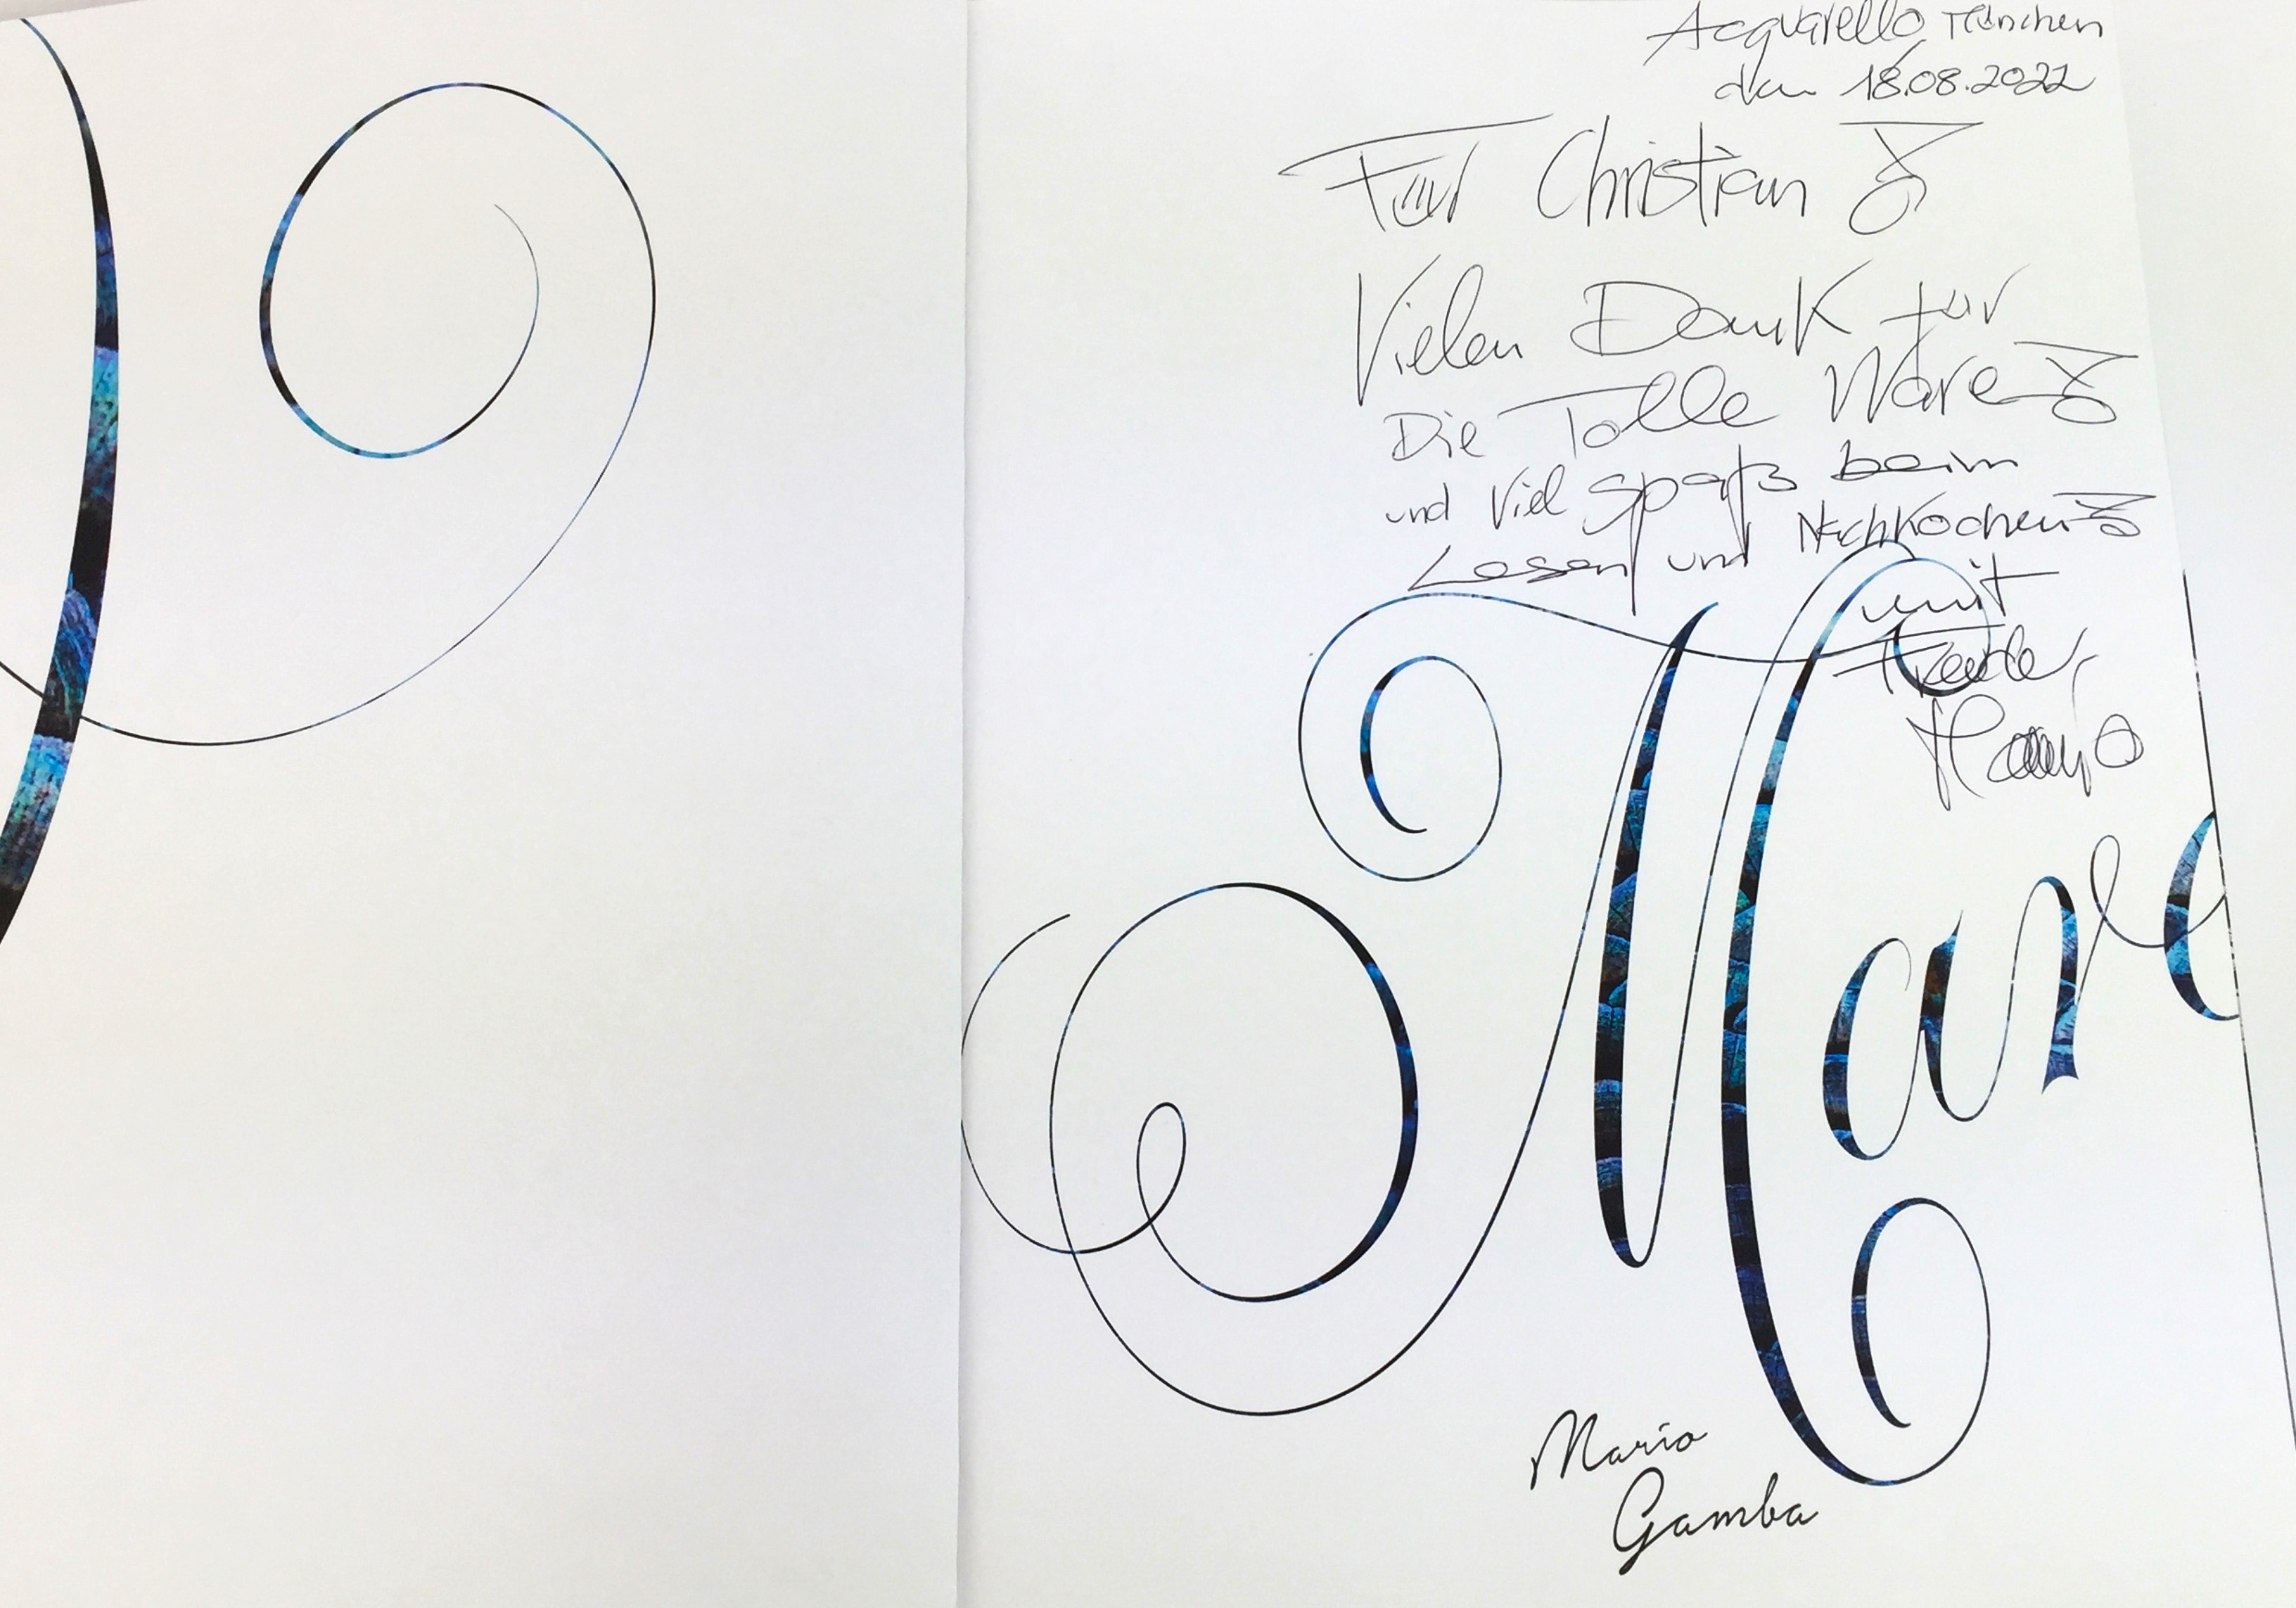 Acquarello München
den 18.08.2022
Für Christian
Vielen Dank für
Die Tolle Ware
und Viel Spaß beim
Lesen und Nachkochen
mit
Freude,
Mario
Mare
Mario
Gamba